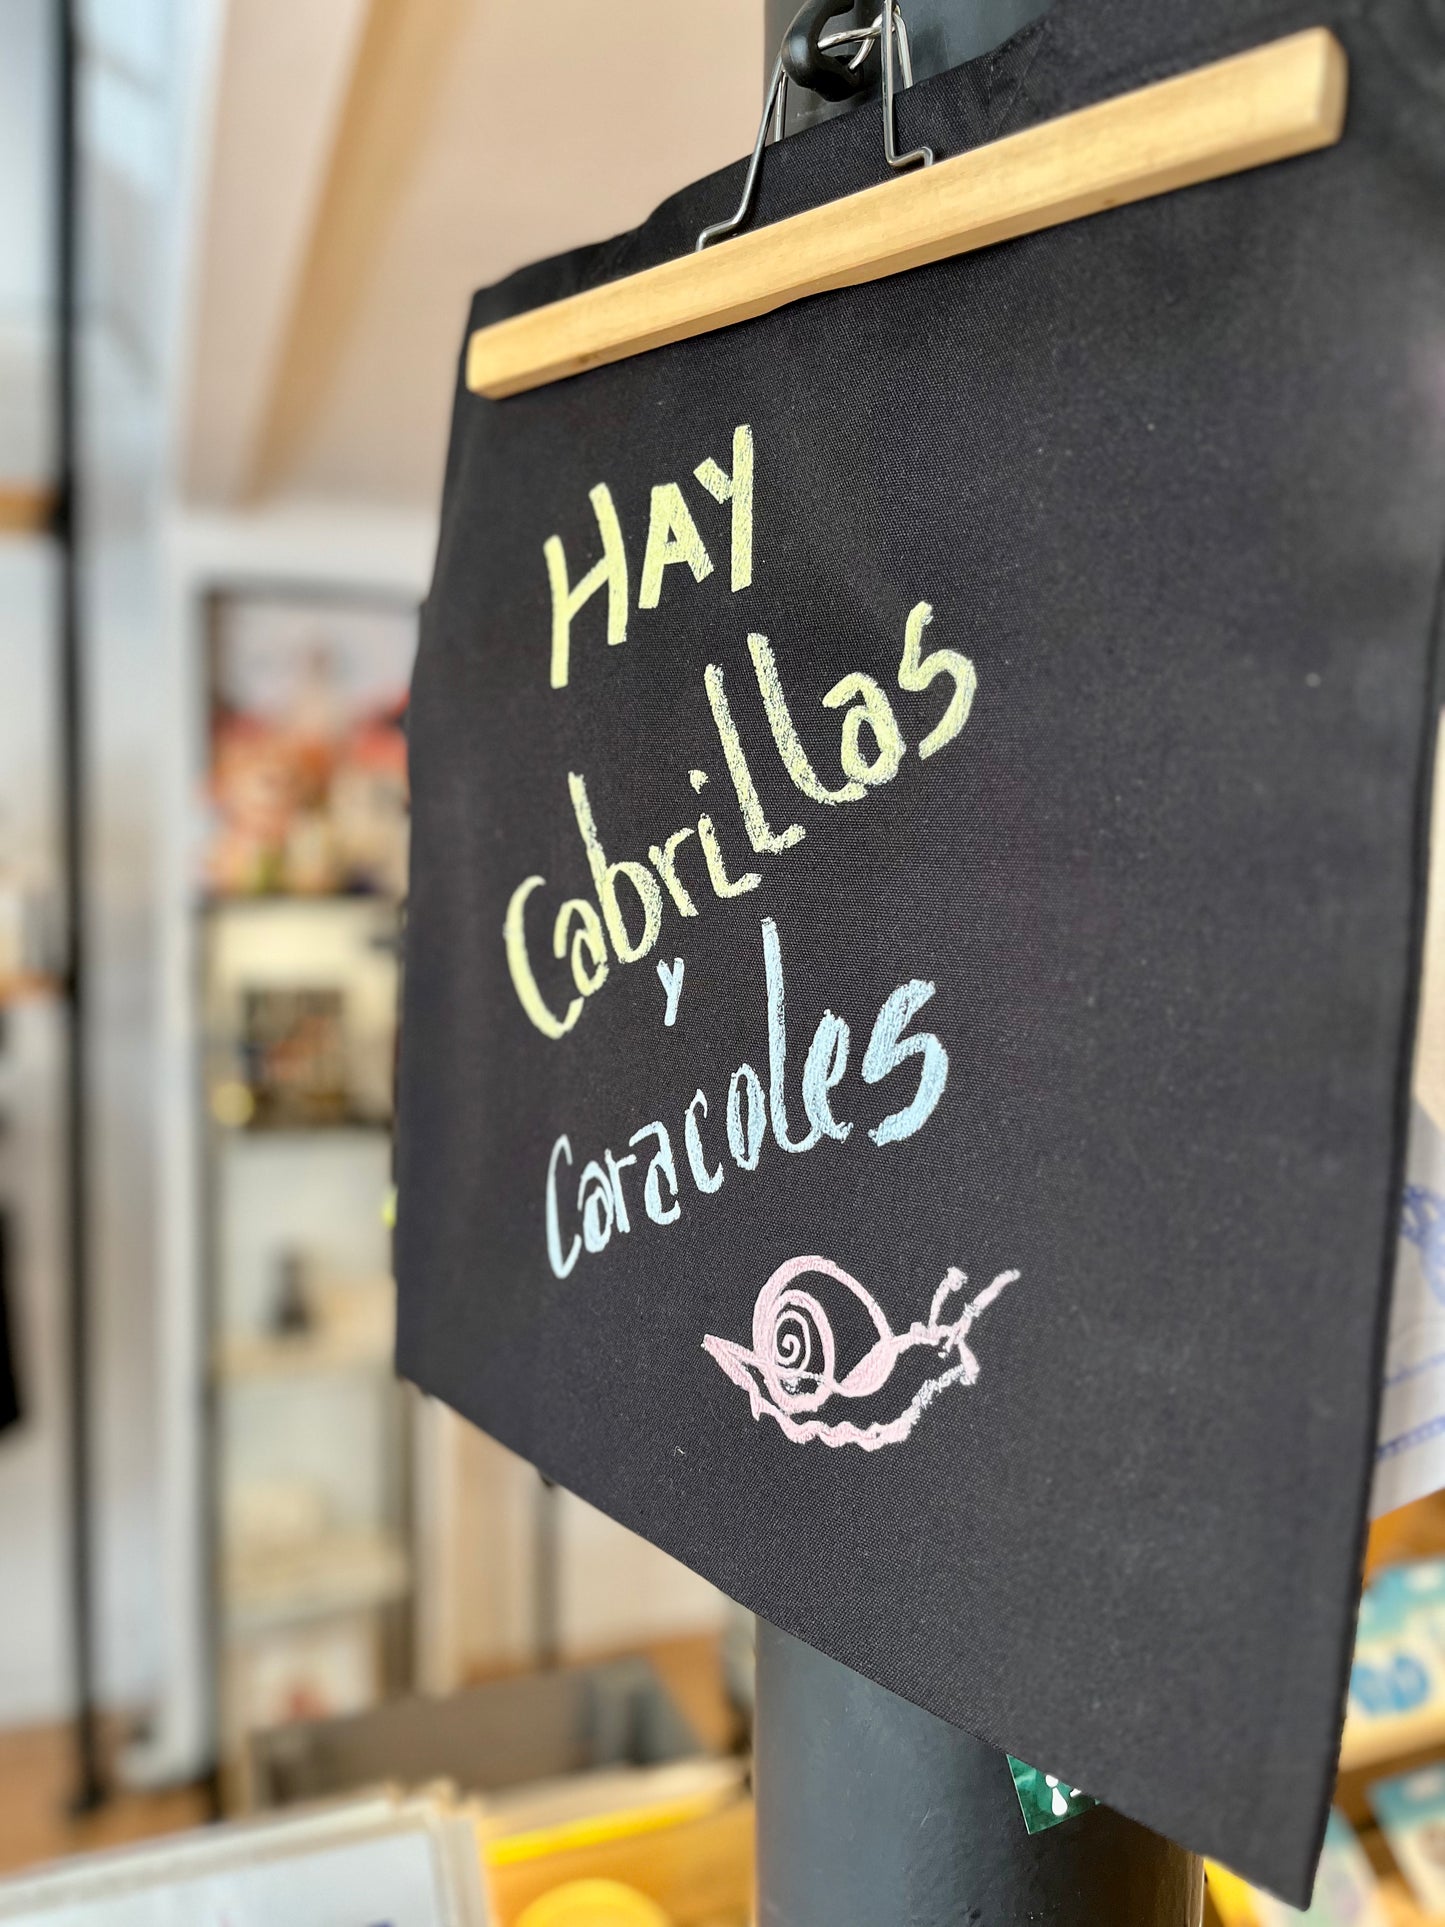 HAY
Cabrillas
y
Caracoles